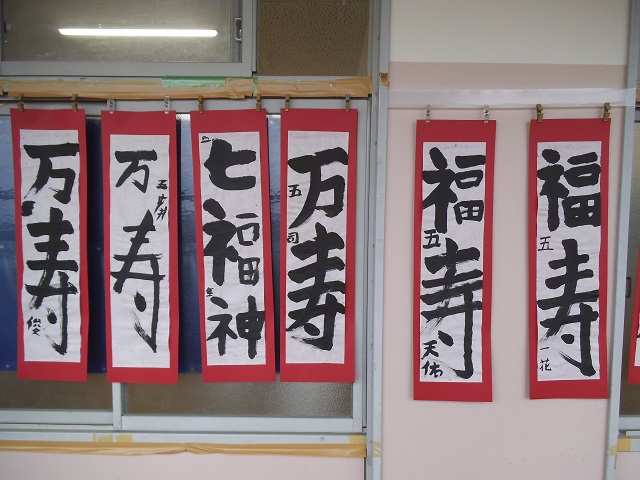 万寿
俊
万寿
七福神
万寿
五
司
福寿
五
天佑
福寿
五
一花